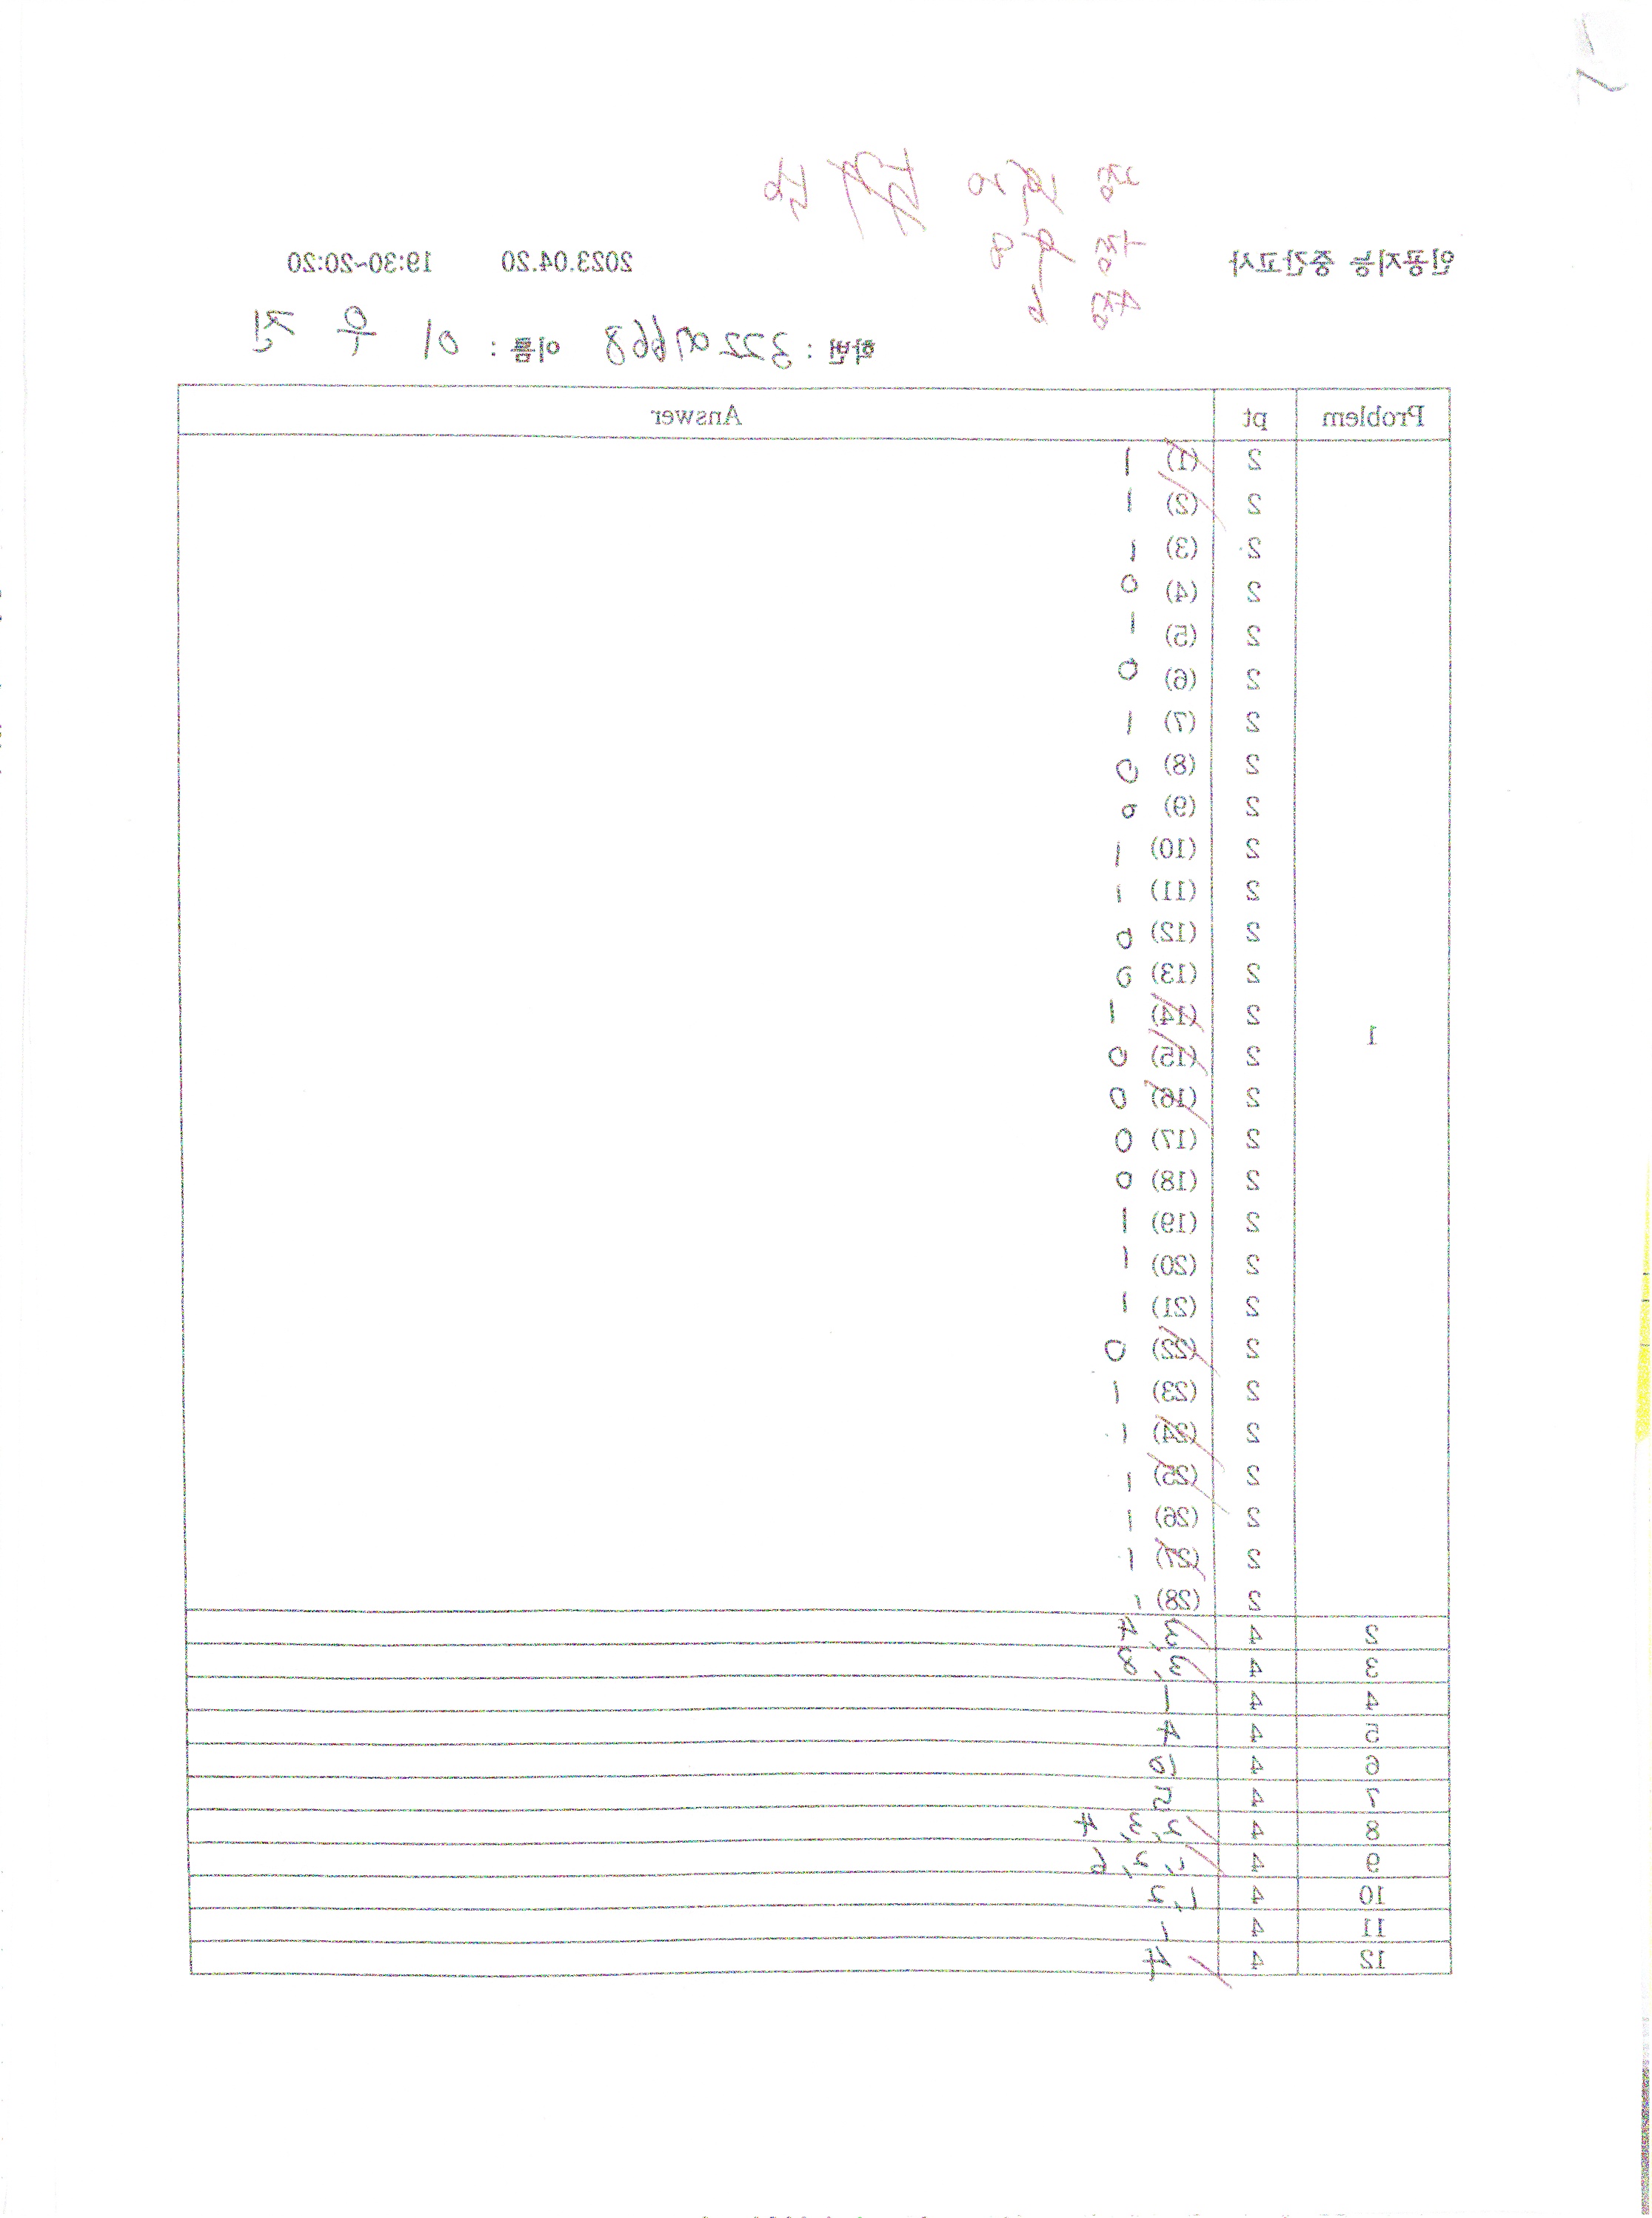 인공지능 중간고사 2023.04.20 19:30~20:20
학번 : 32207668 이름 : 이 우 진
Problem pt Answer
1
2 (1) 1
2 (2) 1
2 (3) 1
2 (4) 0
2 (5) 1
2 (6) 0
2 (7) 1
2 (8) 0
2 (9) 0
2 (10) 1
2 (11) 1
2 (12) 0
2 (13) 0
2 (14) 1
2 (15) 0
2 (16) 0
2 (17) 0
2 (18) 0
2 (19) 1
2 (20) 1
2 (21) 1
2 (22) 0
2 (23) 1
2 (24) 1
2 (25) 1
2 (26) 1
2 (27) 1
2 (28) 1
2 4 3, 4
3 4 3, 8
4 4 1
5 4 4
6 4 10
7 4 5
8 4 2, 3, 4
9 4 1, 2, 6
10 4 1, 2
11 4 1
12 4 4